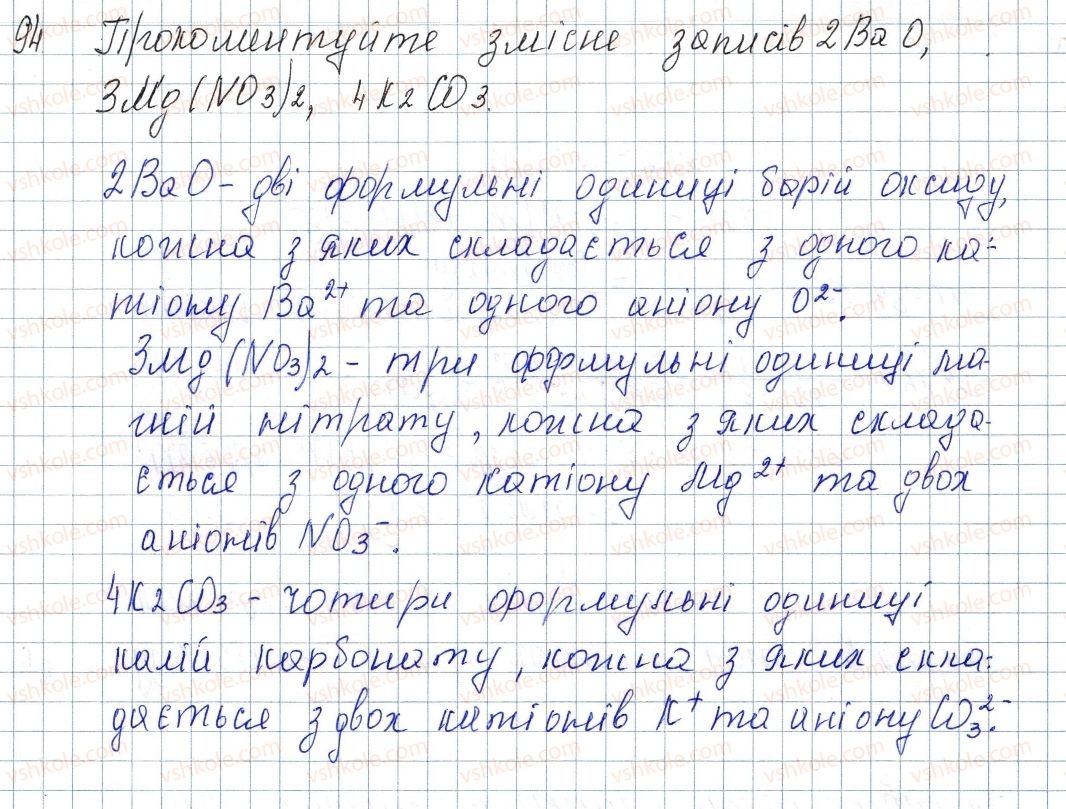 94 Прокоментуйте змісне записів 2BaO,
3Mg(NO3)2, 4K2CO3.
2BaO - дві формульні одиниці барій оксиду,
кожна з яких складається з одного ка-
тіону Ba²⁺ та одного аніону O²⁻.
3Mg(NO3)2 - три формульні одиниці ма-
гній нітрату, кожна з яких склада-
ється з одного катіону Mg²⁺ та двох
аніонів NO3⁻.
4K2CO3 - чотири формульні одиниці
калій карбонату, кожна з яких скла-
дається з двох катіонів K⁺ та аніону CO3²⁻.